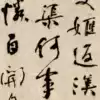 文姬返漢
渠何事
憐自